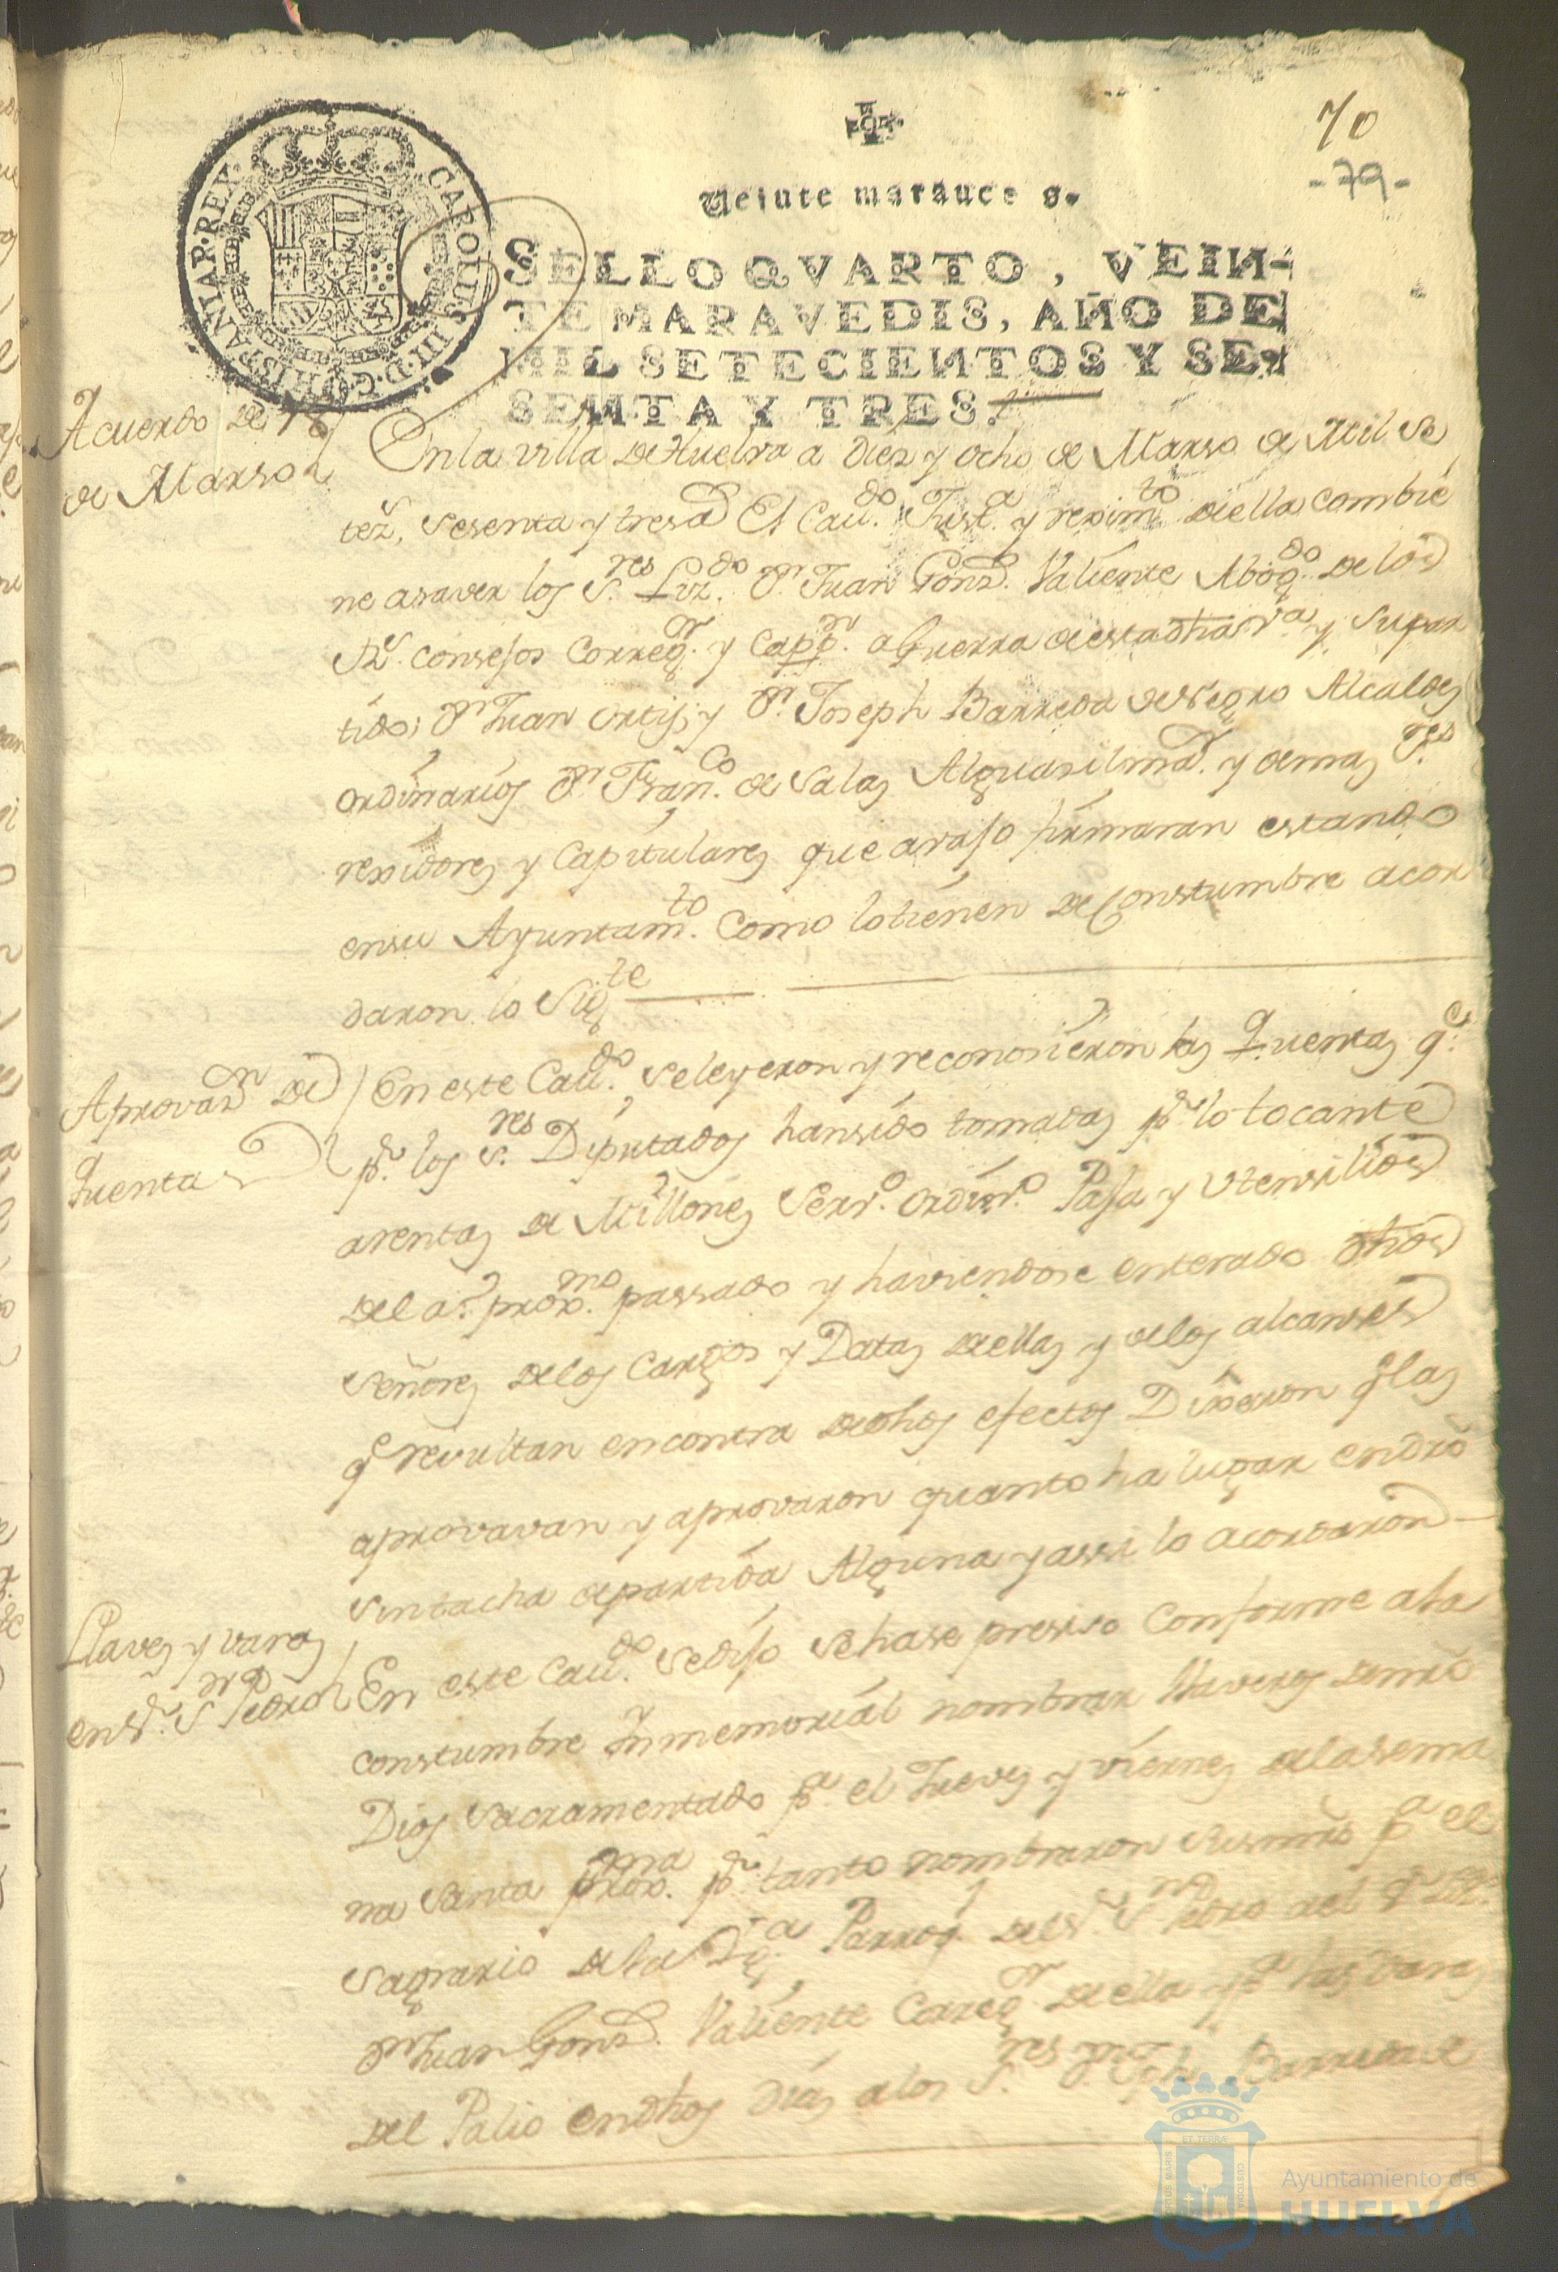 70
-79-
Veinte maravedis.
SELLO QVARTO, VEIN-
TE MARAVEDIS, AÑO DE
MIL SETECIENTOS Y SE-
SENTA Y TRES.
CAROLUS III. D. G. HISPANIAR. REX.
Acuerdo de 18
de Marso
En la villa de Huelva a diez y ocho de Marso de Mil se
tez.s, sesenta y tres a El Cau.do Just.a y reximto. de ella combie
ne a saver los S.res Liz.do Dn. Juan Gonz. Valiente Abog.do de los
Rs. consejos Correg.or y Capp.n a Guerra de esta dha v.a y su par
tido; Dn. Juan Ortis, y Dn. Joseph Barreda de Negro Alcaldes
ordinarios Dn. Fran.co de Salas Alguasil mor. y demas S.res
rexidores y Capitulares que avajo firmaran estando
en su Ayuntam.to como lo tienen de Constumbre acor
daron lo Sigte
Aprovan.n de
Quentas
En este Cau.do se leyeron y reconosieron las Quentas q.e
p.r los S.res Diputados han sido tomadas p.r lo tocante
a rentas de Millones Serv.o ordin.o Paja y Utensilios
del a.o prox.mo passado y haviendose enterado dhos
señores de los Cargos y Datas de ellas y de los alcanses
q.e resultan en contra de dhos efectos Dixeron q.e las
aprovavan y aprovaron quanto ha lugar en dro
sin tacha de partida Alguna y assi lo acordaron
Llaves y varas
en Sr. Sn Pedro
En este Cau.do se dijo se hase presiso conforme a la
constumbre Inmemorial nombrar llaveros de nro
Dios Sacramentado p.a el Jueves y viernes de la sema
na Santa prox.ma p.r tanto nombraron sus mrs p.a el
sagrario de la Ig.a Parroq.l de Sr. Sn Pedro al Sr. Liz.do
Dn Juan Gonz. Valiente Correg.or de ella y p.a las varas
del Palio en dhos dias a los S.res Dn. Jph Barreda
ET TERRÆ
PORTUS MARIS
CUSTODIA
Ayuntamiento de
HUELVA